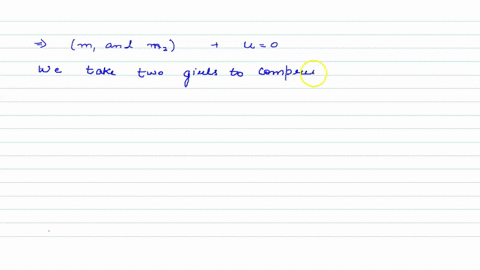 ⇒ (m₁ and m₂) + u=0
We take two girls to compress